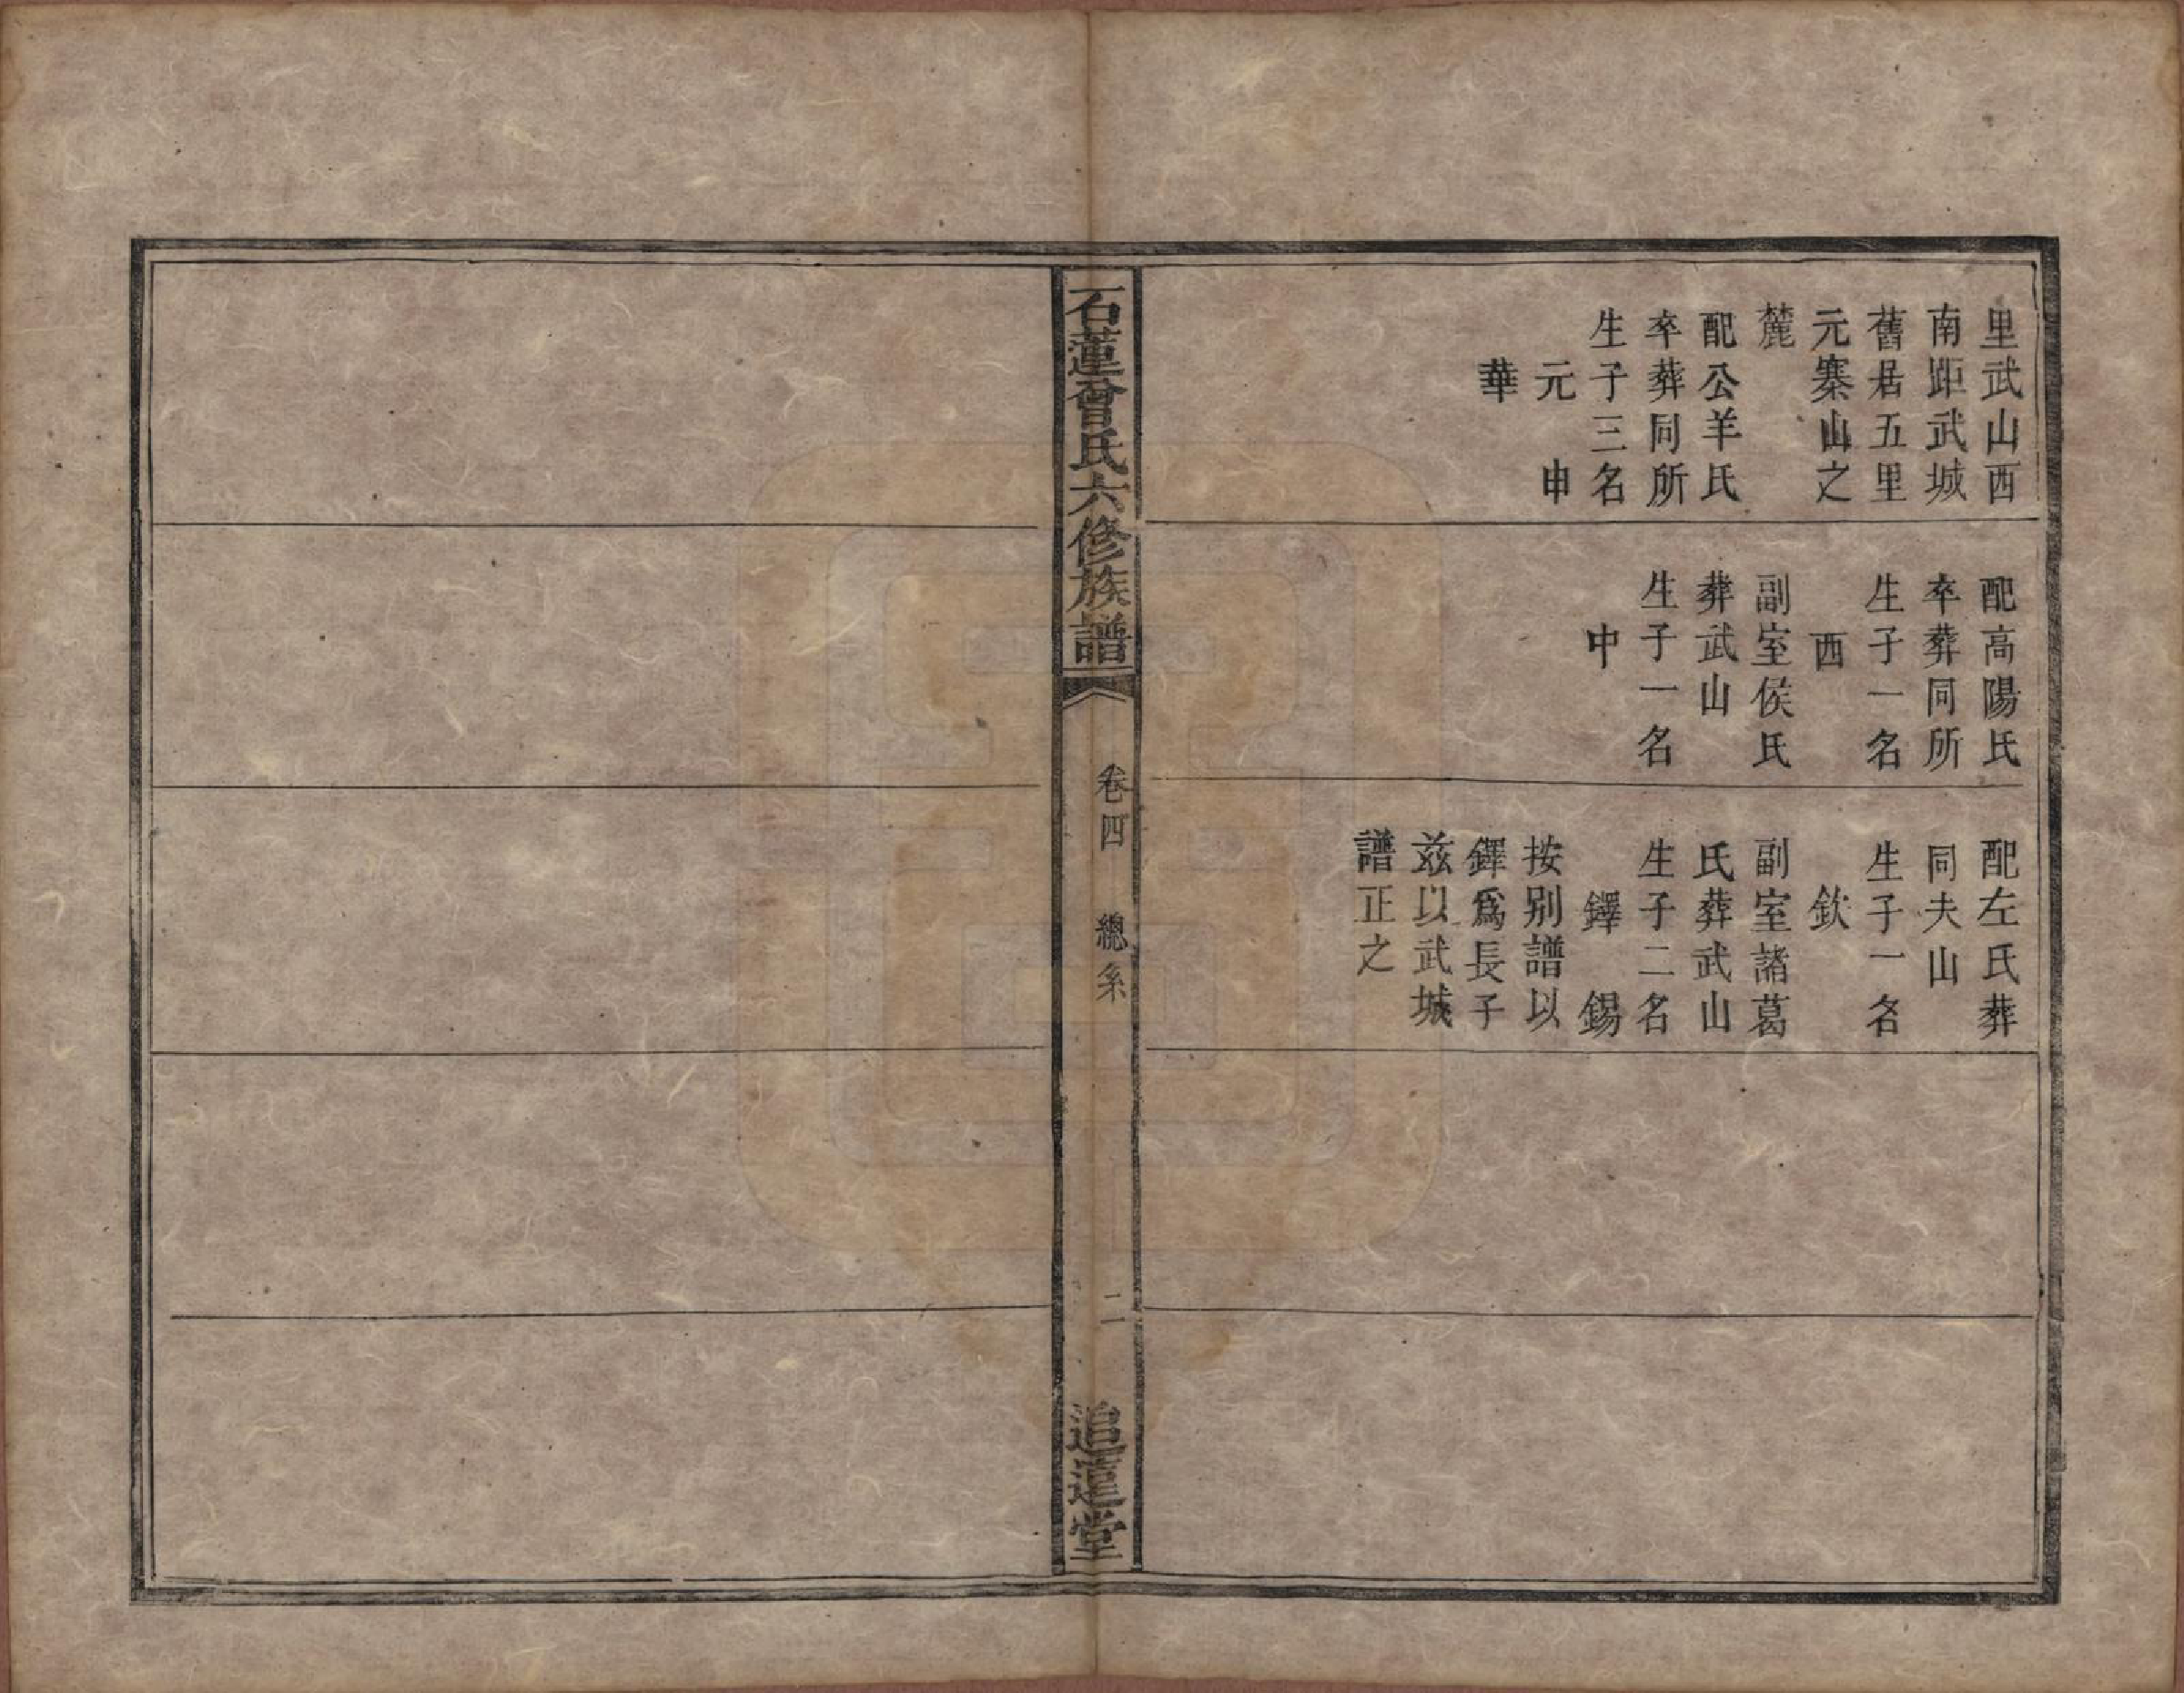 里武山西
南距武城
舊居五里
元寨山之
麓
配公羊氏
卒葬同所
生子三名
元　申
華
配高陽氏
卒葬同所
生子一名
西
副室侯氏
葬武山
生子一名
中
配左氏葬
同夫山
生子一名
欽
副室諸葛
氏葬武山
生子二名
鐸　錫
按别譜以
鐸爲長子
兹以武城
譜正之
石蓮曾氏六修族譜
卷四　總系
二
追遠堂